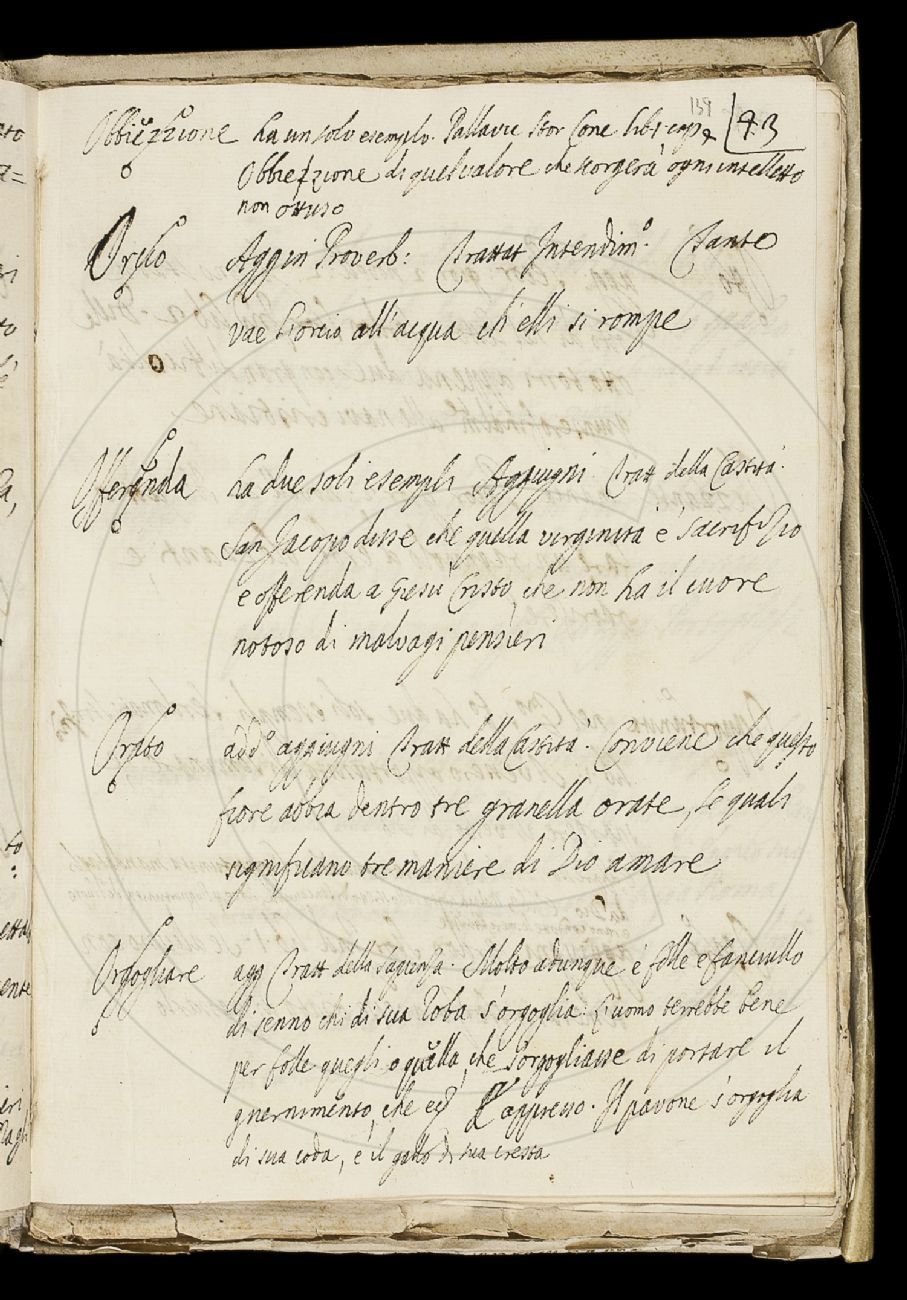 139 43
Obbiezzione ha un solo esempio. Pallavic Stor Conc lib 1 cap
Obbiezzione di quel valore che scorgerà ogni intelletto
non ottuso
Aggiu Proverb: Trattat Intendim.o Tanto
vae l'orcio all'acqua ch'elli si rompe
Offerenda ha due soli esempli Aggiugni Tratt della Castità.
San Jacopo disse che quella virginità è sacrifizio
e offerenda a Giesù Cristo, che non ha il cuore
notoso di malvagi pensieri
Orato add.o aggiugni Tratt della Castità. Conviene che questo
fiore abbia dentro tre granella orate, le quali
significano tre maniere di Dio amare
Orgogliare agg Tratt della Sapienza. Molto adunque è folle e fanciullo
di senno chi di sua roba s'orgoglia. L'uomo terrebbe bene
per folle quegli o quella, che s'orgogliasse di portare il
guernimento, che appresso. Il pavone s'orgoglia
di sua coda, e il gallo di sua cresta